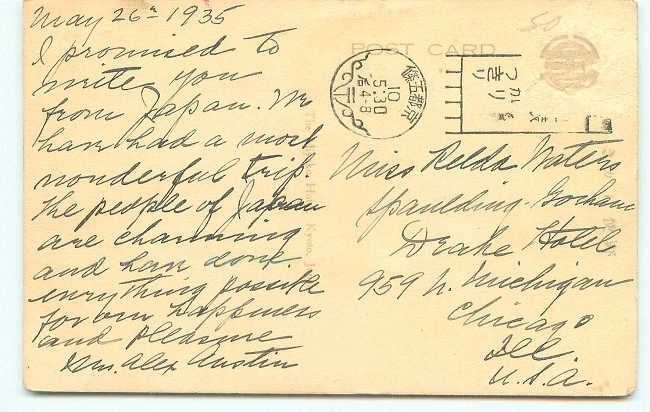 May 26th 1935
I promised to
write you
from Japan. We
have had a most
wonderful trip.
The people of Japan
are charming
and have done
everything possible
for our happiness
and pleasure
Mrs. Alex Austin
50
POST CARD
京都五條
10
5.30
后4-8
はつきり
Miss Relda Waters
Spaulding-Gorham
Drake Hotel
959 N. Michigan
Chicago
Ill.
U.S.A.